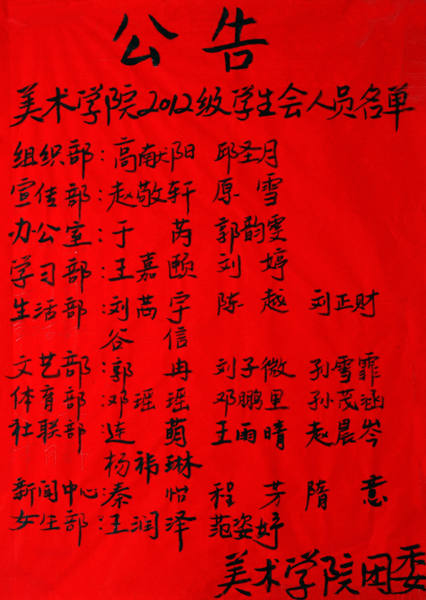 公告
美术学院2012级学生会人员名单
组织部:高献阳 邱圣月
宣传部:赵敬轩 原雪
办公室:于芮 郭韵雯
学习部:王嘉颐 刘婷
生活部:刘芮宇 陈越 刘正财
谷信
文艺部:郭冉 刘子微 孔雪霏
体育部:邓瑶瑶 邓鹏里 孙茂涵
社联部:连萌 王雨晴 赵晨岑
杨祎琳
新闻中心:秦怡 程芳 隋意
女生部:王润泽 范姿妤
美术学院团委